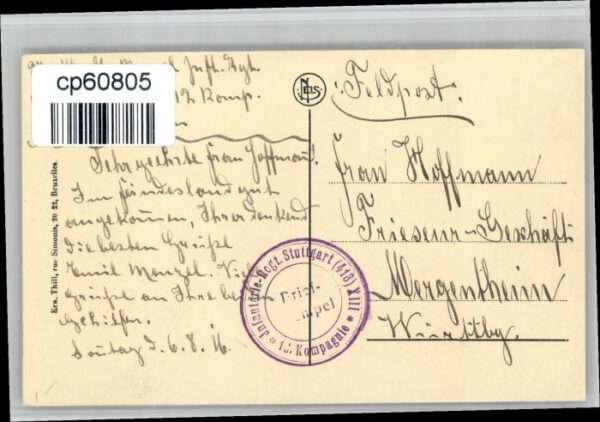 Inft. Rgt.
12 Komp.
cp60805
NELS
Feldpost.
Sehr geehrte Frau Hoffmann!
Im Feindesland gut
angekommen, Ihrer denkend
die besten Grüße
Emil Menzel. Viele
grüße an Ihre beiden
gehilfen.
Sontag d. 6.8.16
Frau Hoffmann
Friseur-Geschäft
Mergentheim
Württbg.
Ern. Thill, rue Simonis, 20 22, Bruxelles
Infanterie-Regt. Stuttgart (413) XIII
Brief-
empel
12. Kompagnie